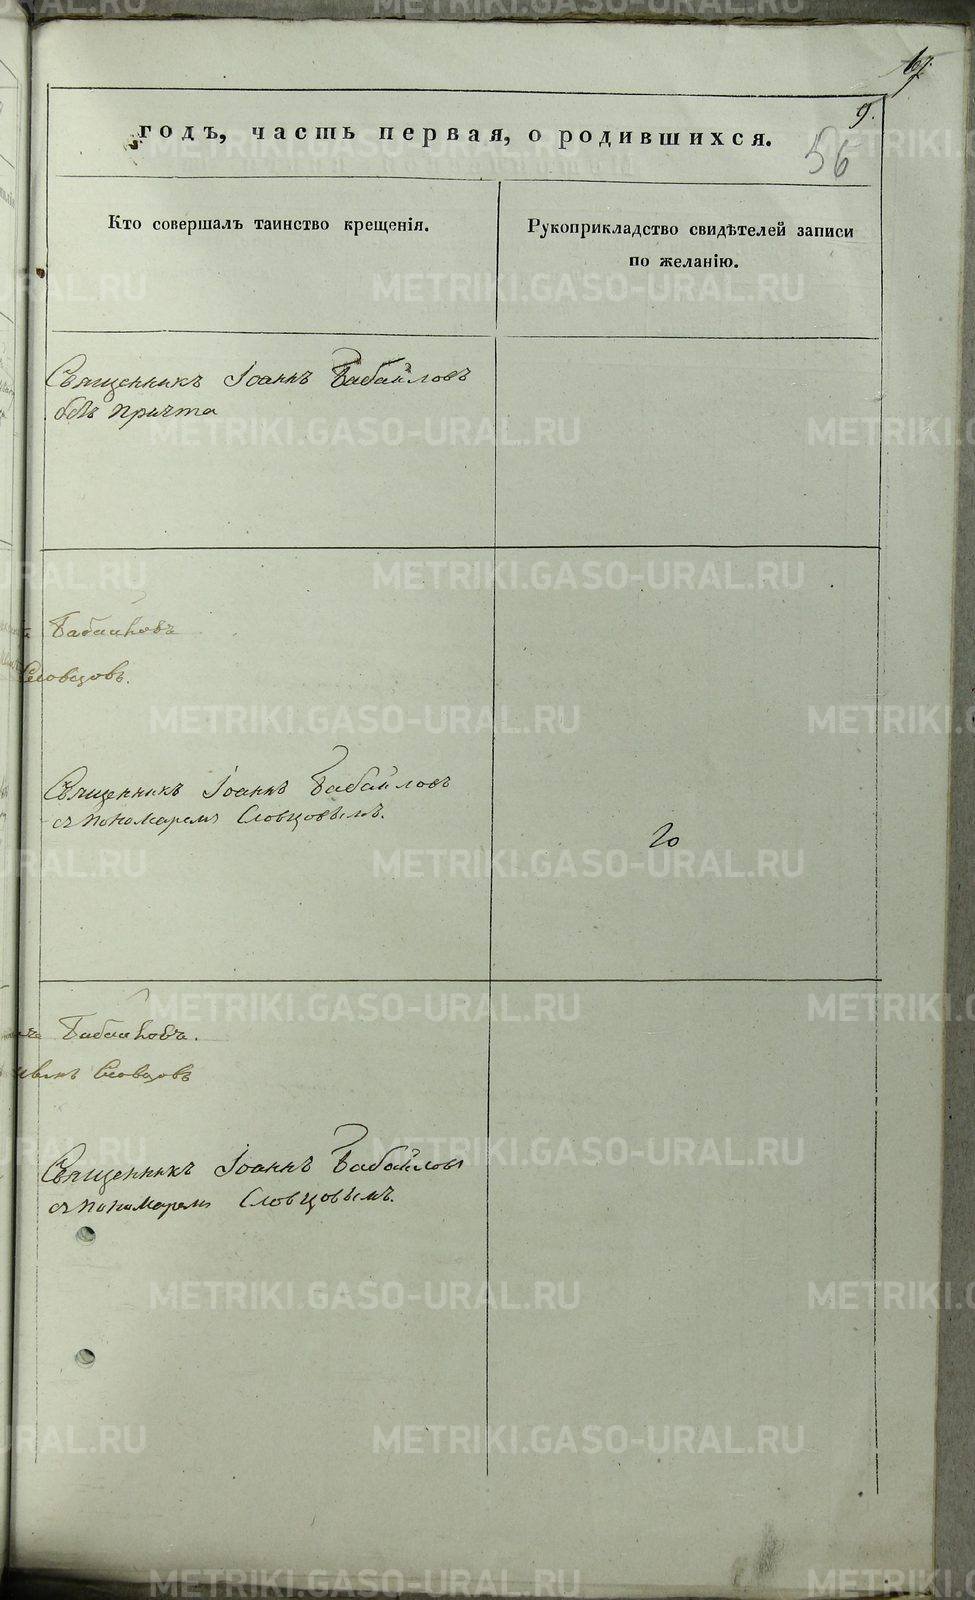 9.
56
годъ, часть первая, о родившихся.
Кто совершалъ таинство крещенія.
Рукоприкладство свидѣтелей записи
по желанію.
Священникъ Іоаннъ Бабайловъ
безъ причта
Бабайловъ
Словцовъ.
Священникъ Іоаннъ Бабайловъ
съ пономаремъ Словцовымъ.
20
Бабайловъ.
Словцовъ
Священникъ Іоаннъ Бабайловъ
съ пономаремъ Словцовымъ.
METRIKI.GASO-URAL.RU